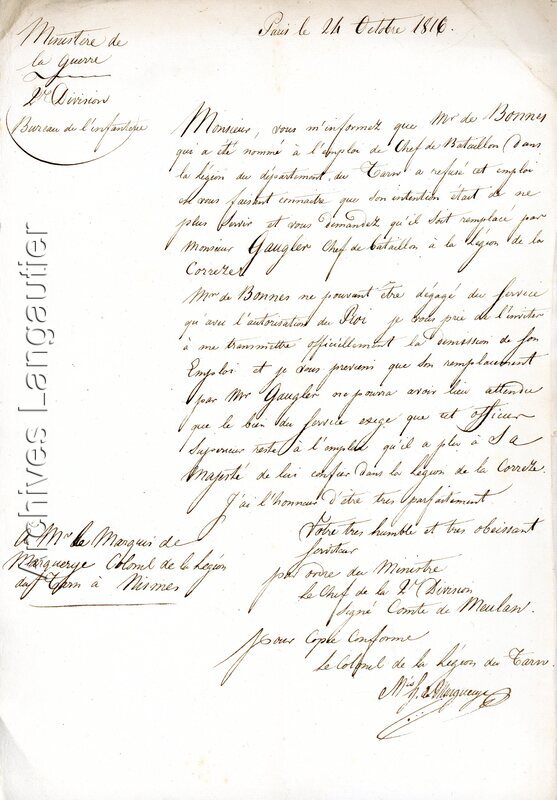 Paris le 24 Octobre 1816.
Ministère de
la Guerre
2e Division
Bureau de l'infanterie
Monsieur, vous m'informez que Mr de Bonnes
qui a été nommé à l'emploi de Chef de Bataillon dans
la légion du département du Tarn a refusé cet emploi
en vous faisant connaitre que son intention était de ne
plus servir et vous demandez qu'il soit remplacé par
Monsieur Gaugler Chef de bataillon à la légion de la
Correze.
Mr de Bonnes ne pouvant être dégagé du service
qu'avec l'autorisation du Roi je vous prie de l'inviter
à me transmettre officiellement la demission de son
Emploi et je vous previens que son remplacement
par Mr Gaugler ne pourra avoir lieu attendu
que le bien du service exige que cet officier
Superieur reste à l'emploi qu'il a plu à Sa
Majesté de lui confier dans la légion de la Correze.
J'ai l'honneur d'être très parfaitement
Votre très humble et très obeissant
serviteur
par ordre du Ministre
Le Chef de la 2e Division
Signé Comte de Meulan.
A Mr le Marquis de
Marguerye Colonel de la Légion
du Tarn à Nismes
Pour Copie Conforme
Le Colonel de la Légion du Tarn.
Mis de Marguerye
Archives Langautier